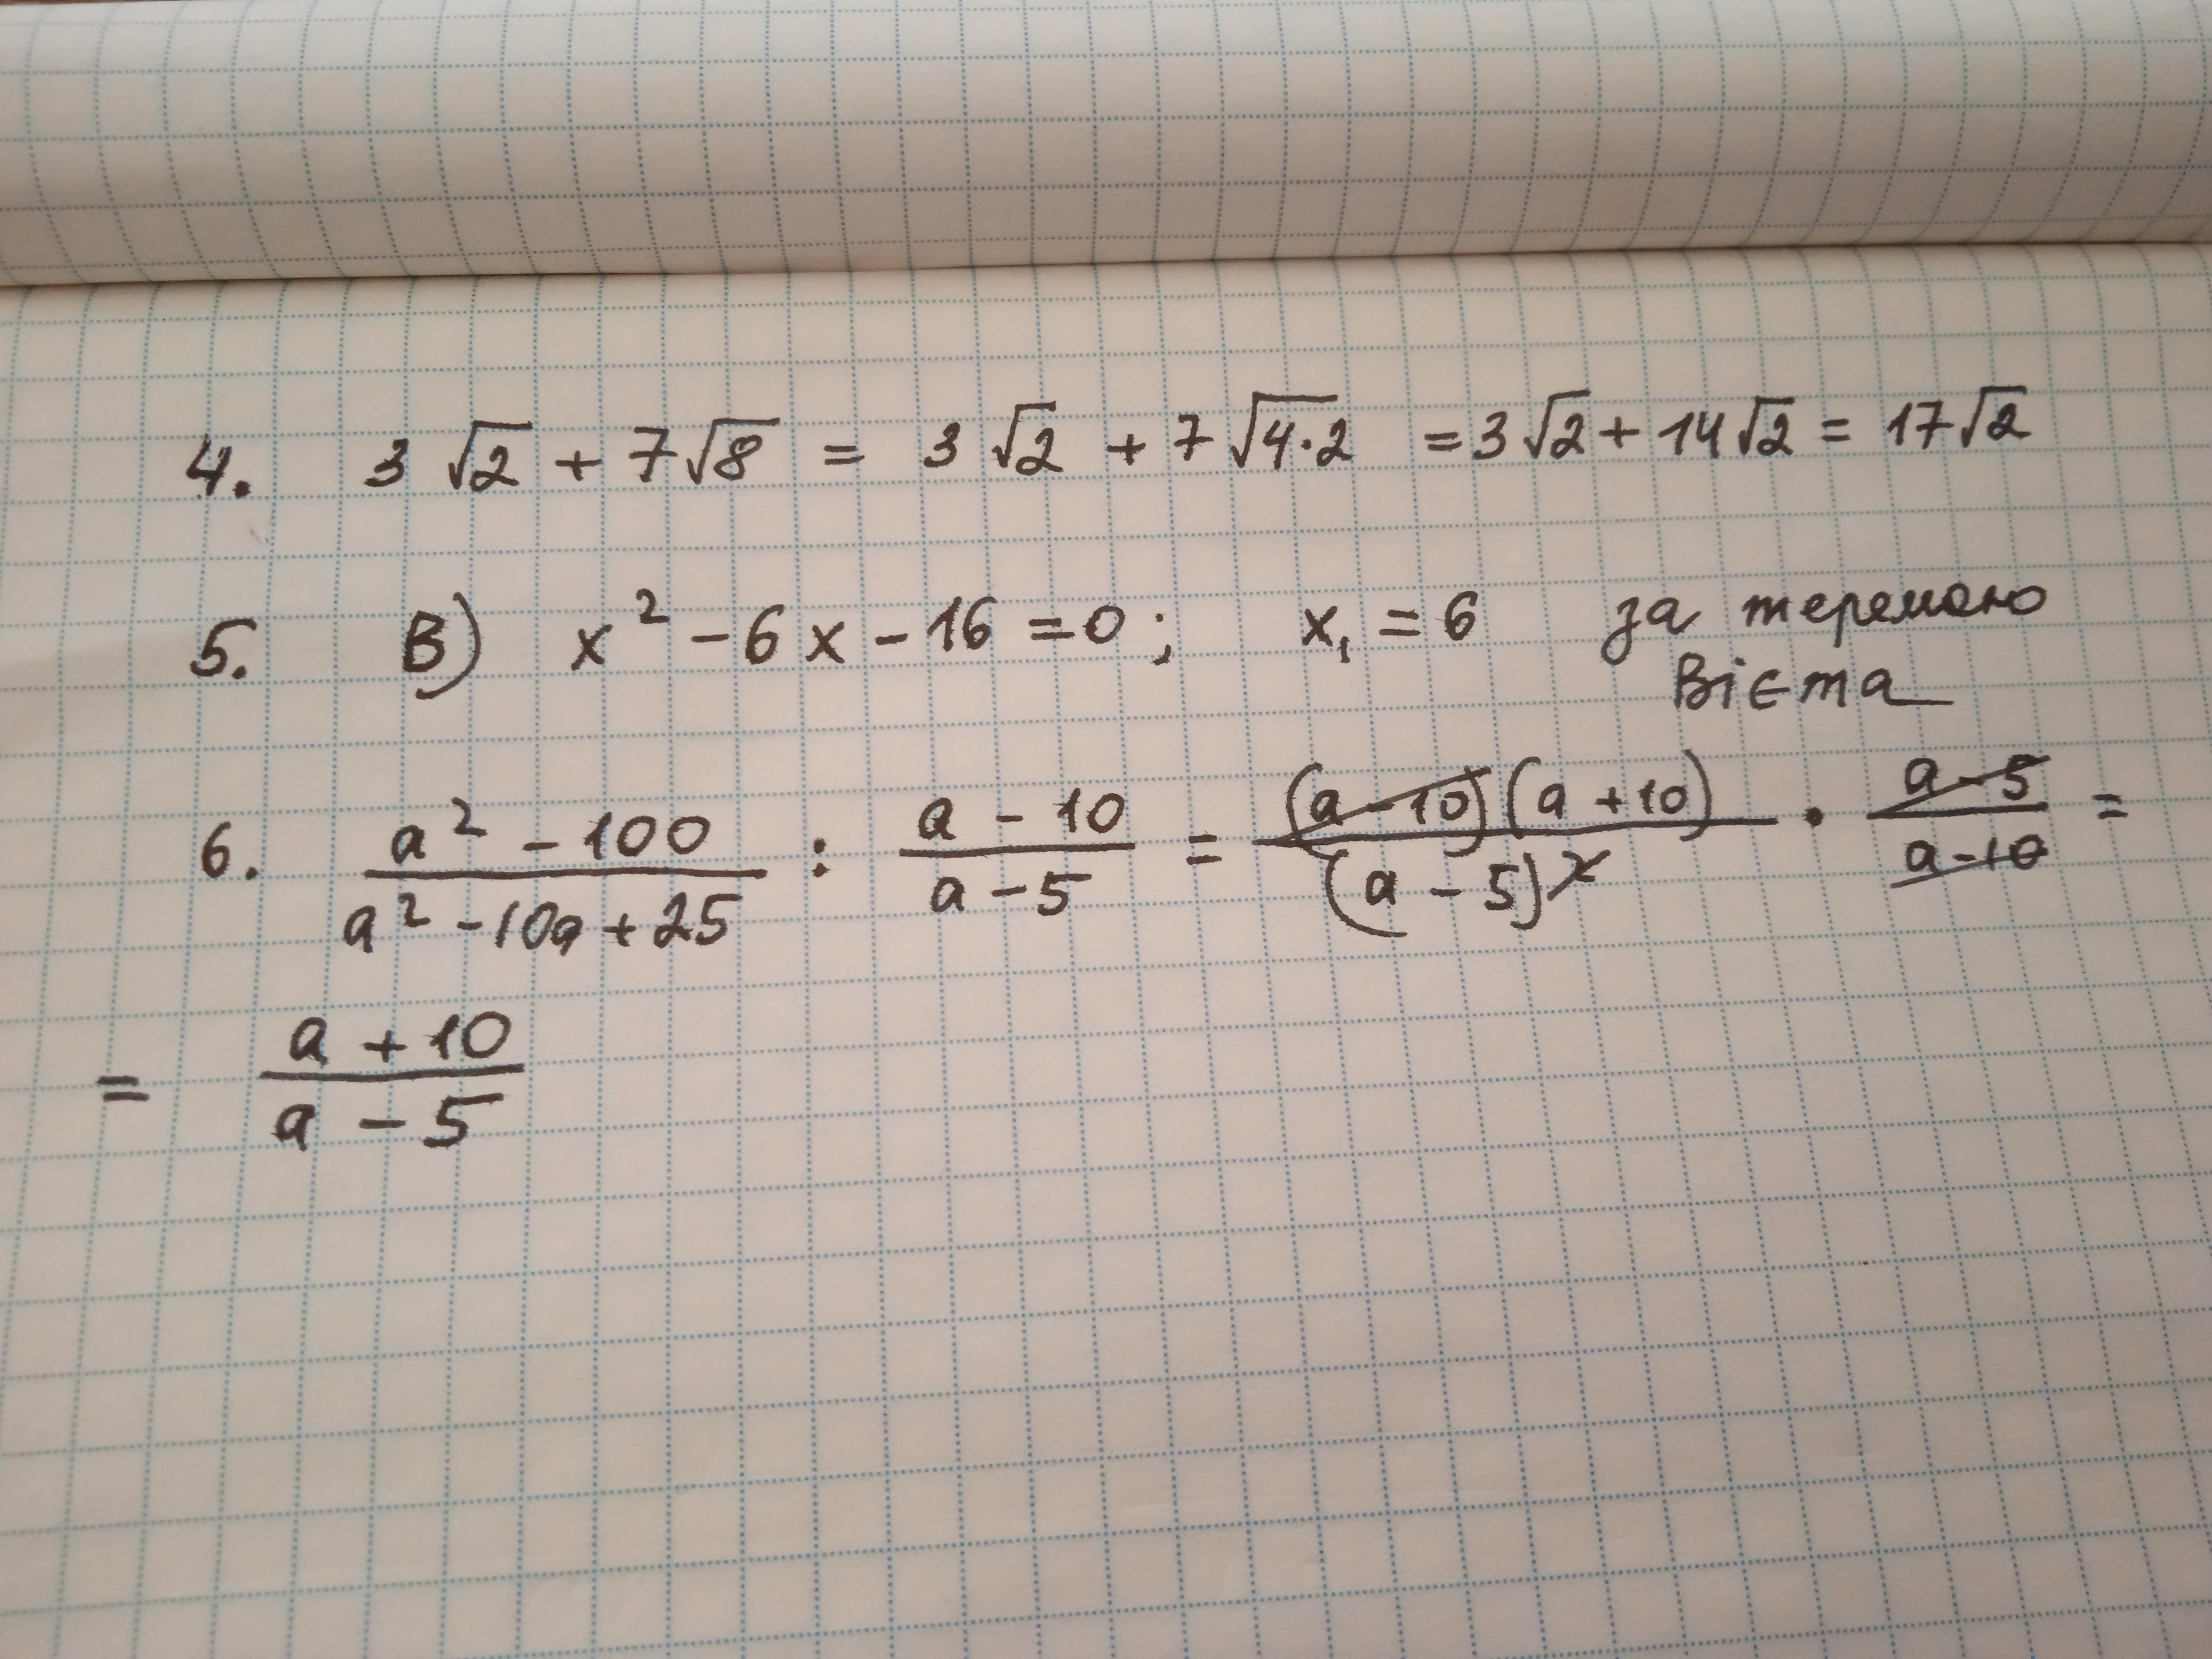 4. 3√2 + 7√8 = 3√2 + 7√(4·2) = 3√2 + 14√2 = 17√2
5. В) x² - 6x - 16 = 0; x₁ = 6 за теремою
Вієта
6. (a² - 100)/(a² - 10a + 25) : (a - 10)/(a - 5) = ((a - 10)(a + 10))/((a - 5)²) · (a - 5)/(a - 10) =
= (a + 10)/(a - 5)